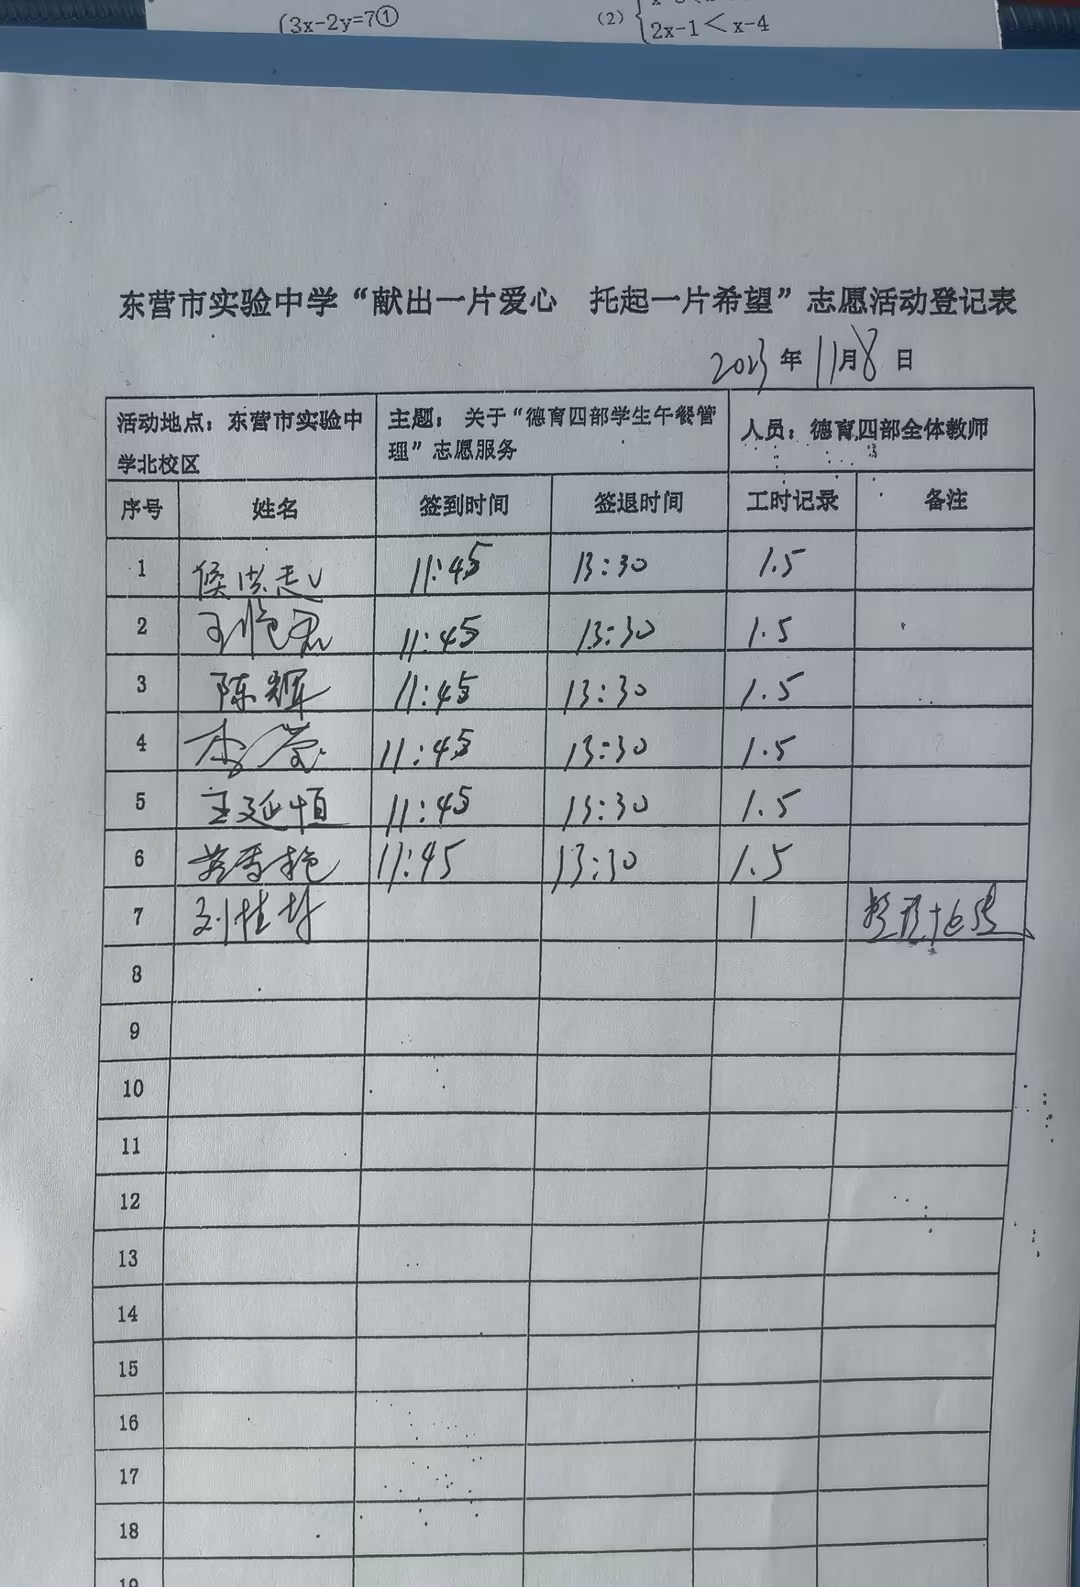 3x-2y=7①
(2)
2x-1<x-4
东营市实验中学“献出一片爱心 托起一片希望”志愿活动登记表
2023年11月8日
活动地点：东营市实验中学北校区 主题：关于“德育四部学生午餐管理”志愿服务 人员：德育四部全体教师
序号 姓名 签到时间 签退时间 工时记录 备注
1 11:45 13:30 1.5
2 11:45 13:30 1.5
3 陈辉 11:45 13:30 1.5
4 11:45 13:30 1.5
5 王延恒 11:45 13:30 1.5
6 11:45 13:30 1.5
7 1
8
9
10
11
12
13
14
15
16
17
18
19